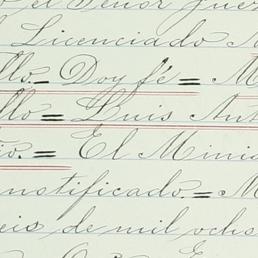 o el Señor Juez
Licenciado
llo.= Doy fé = M
llo = Luis Ant
io. = El Minis
notificado. = M
eis de mil ocho